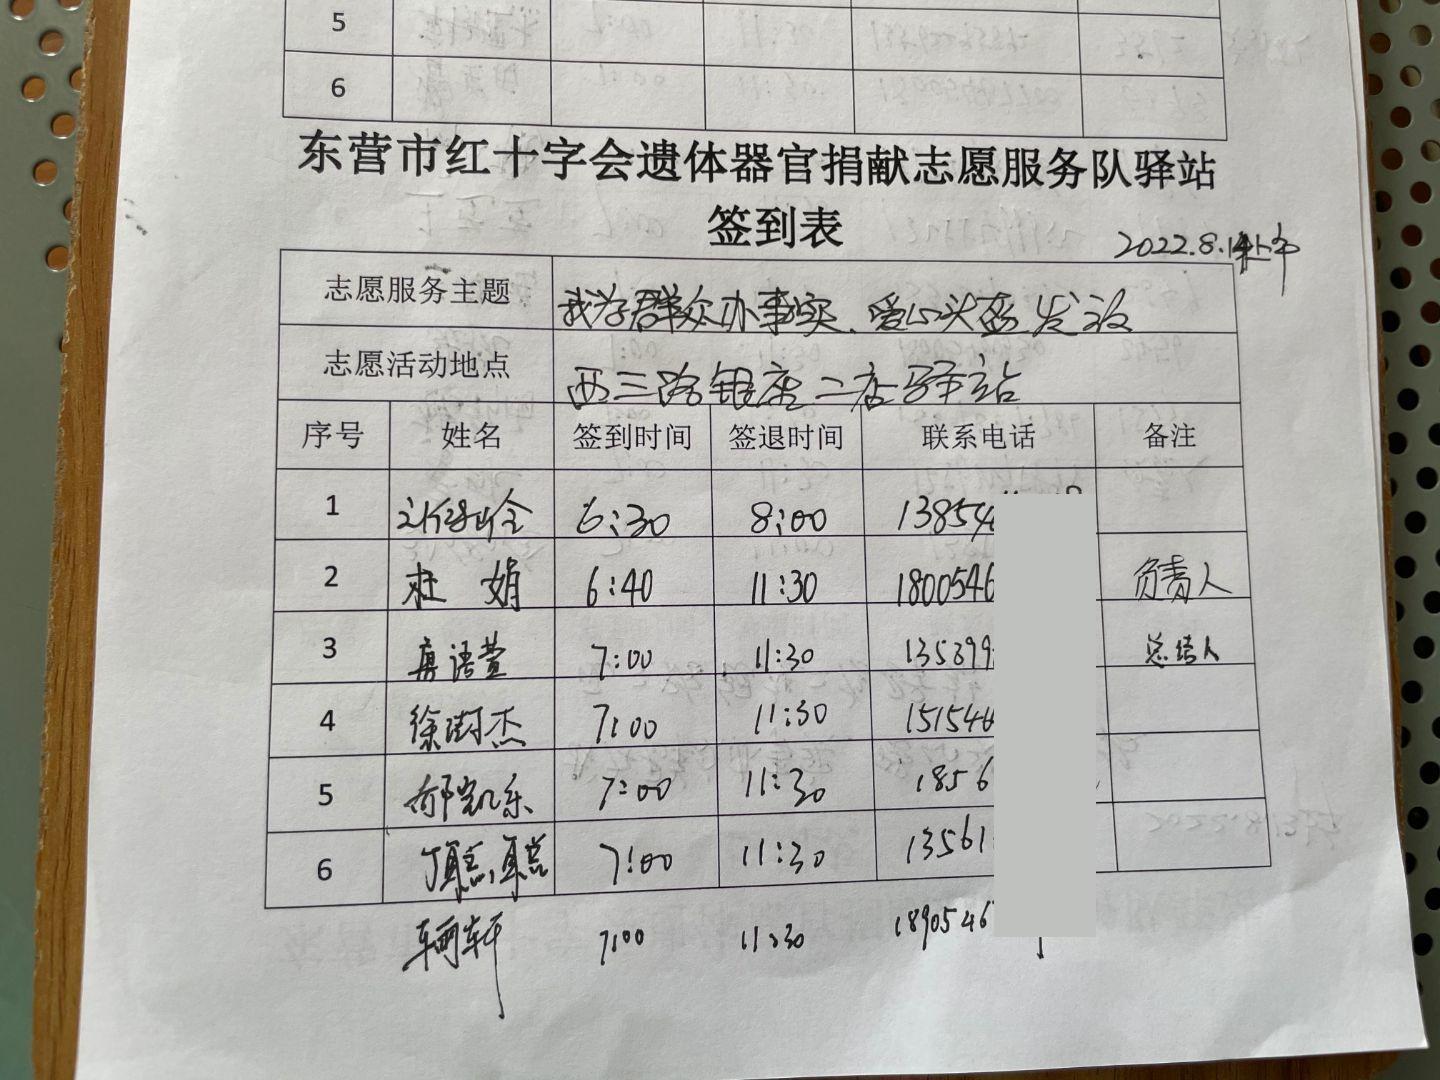 5
6
东营市红十字会遗体器官捐献志愿服务队驿站
签到表
2022.8.14上午
志愿服务主题 我为群众办事实、爱心头盔发放
志愿活动地点 西三路银座二店驿站
序号 姓名 签到时间 签退时间 联系电话 备注
1 6:30 8:00 13854
2 杜娟 6:40 11:30 1800546 负责人
3 语萱 7:00 11:30 135399 总结人
4 徐树杰 7:00 11:30 15154
5 邴凯乐 7:00 11:30 1856
6 7:00 11:30 13561
轩 7:00 11:30 1890546